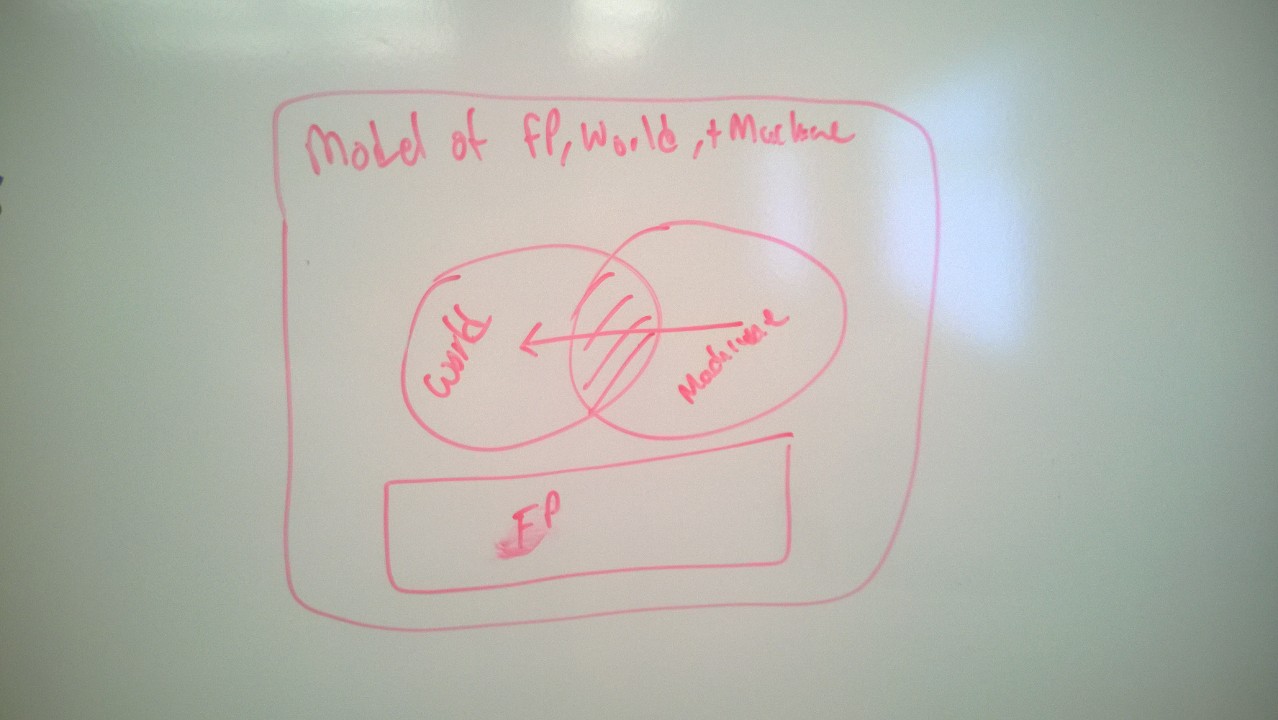 Model of FP, World, + Machine
World
Machine
FP